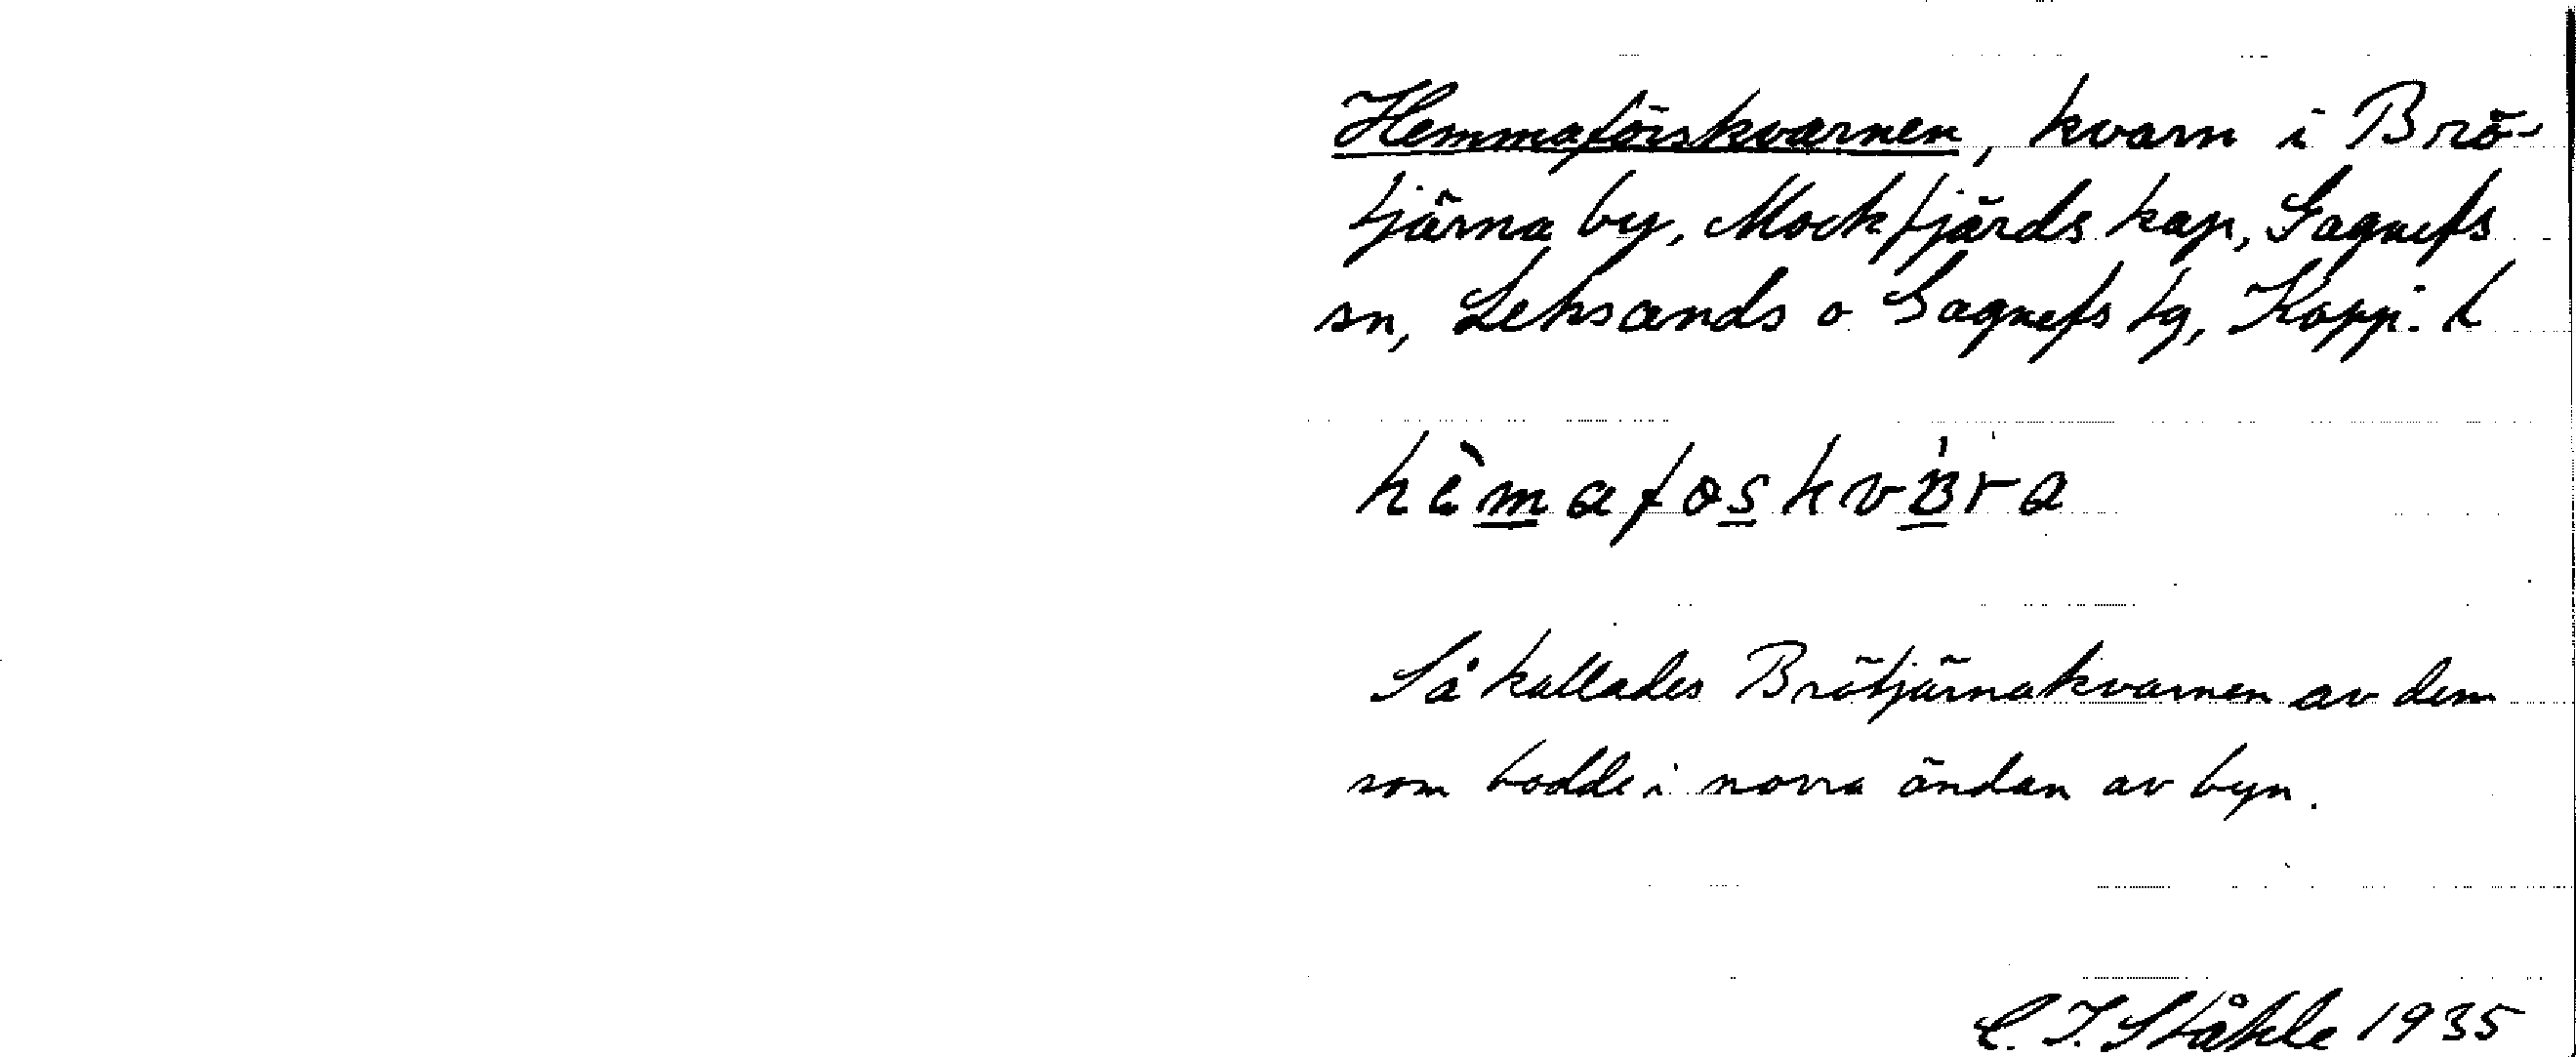 Hemmaförskvarnen, kvarn i Brö-
tjärna by, Mockfjärds kap, Gagnefs
sn, Leksands o Gagnefs tg, Kopp. l
Så kallades Brötjärnakvarnen av dem
som bodde i norra ändan av byn.
C. I. Ståhle 1935